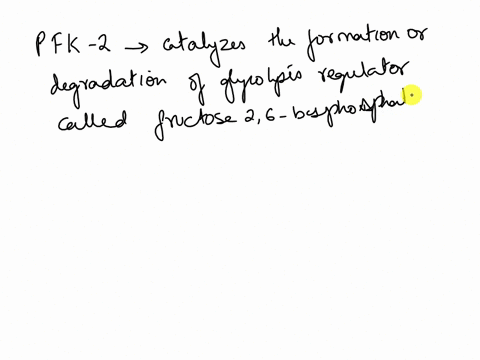 PFK-2 → catalyzes the formation or
degradation of glycolysis regulator
called fructose 2,6-bisphosphat